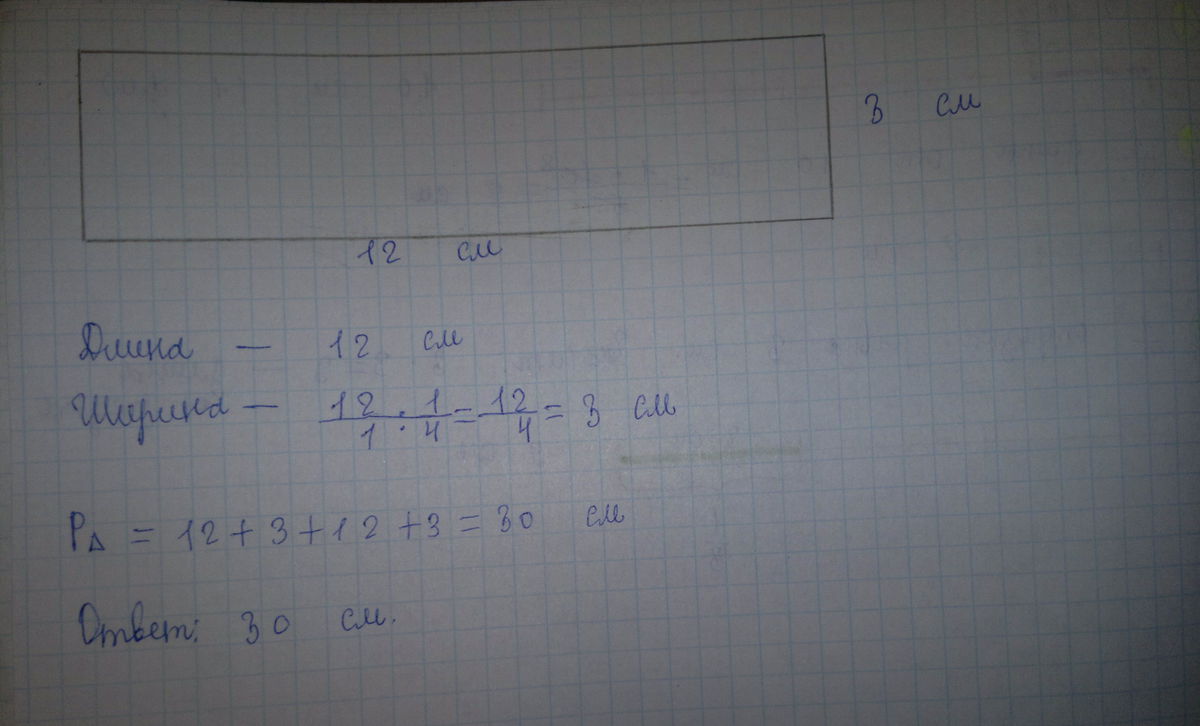 3 см
12 см
Длина — 12 см
Ширина — 12/1 · 1/4 = 12/4 = 3 см
P△ = 12 + 3 + 12 + 3 = 30 см
Ответ: 30 см.